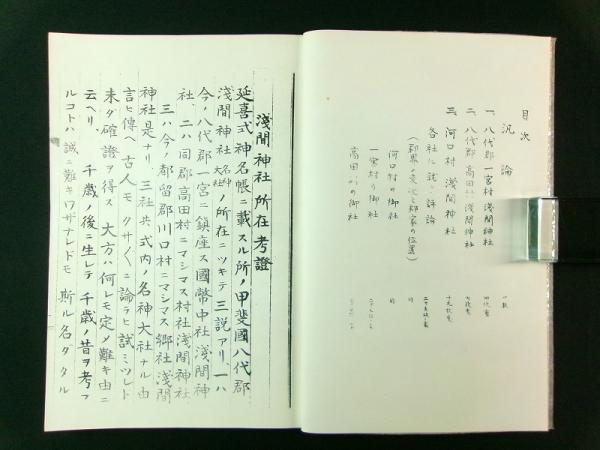 目次
汎論
一、八代郡一宮村浅間神社
二、八代郡高田村浅間神社
三、河口村浅間神社
各社に就て評論
河口村の御社
一宮村の御社
高田村の御社
淺間神社所在考證
延喜式神名帳ニ載スル所ノ甲斐國八代郡
淺間神社名神大社ノ所在ニツキテ三説アリ、一ハ
今ノ八代郡一宮ニ鎮座ス國幣中社淺間神
社、二ハ同郡高田村ニマシマス村社淺間神社
三ハ今ノ都留郡川口村ニマシマス郷社淺間
神社是ナリ、三社共式内ノ名神大社ナル由
言ヒ傳ヘ古人モクサ〲ニ論ラヒ試ミツレド
未ダ確證ヲ得ス大方ハ何レモ定メ難キ由ニ
云ヘリ、千歳ノ後ニ生レテ千歳ノ昔ヲ考フ
ルコトハ誠ニ難キワザナレドモ斯ル名ダタル